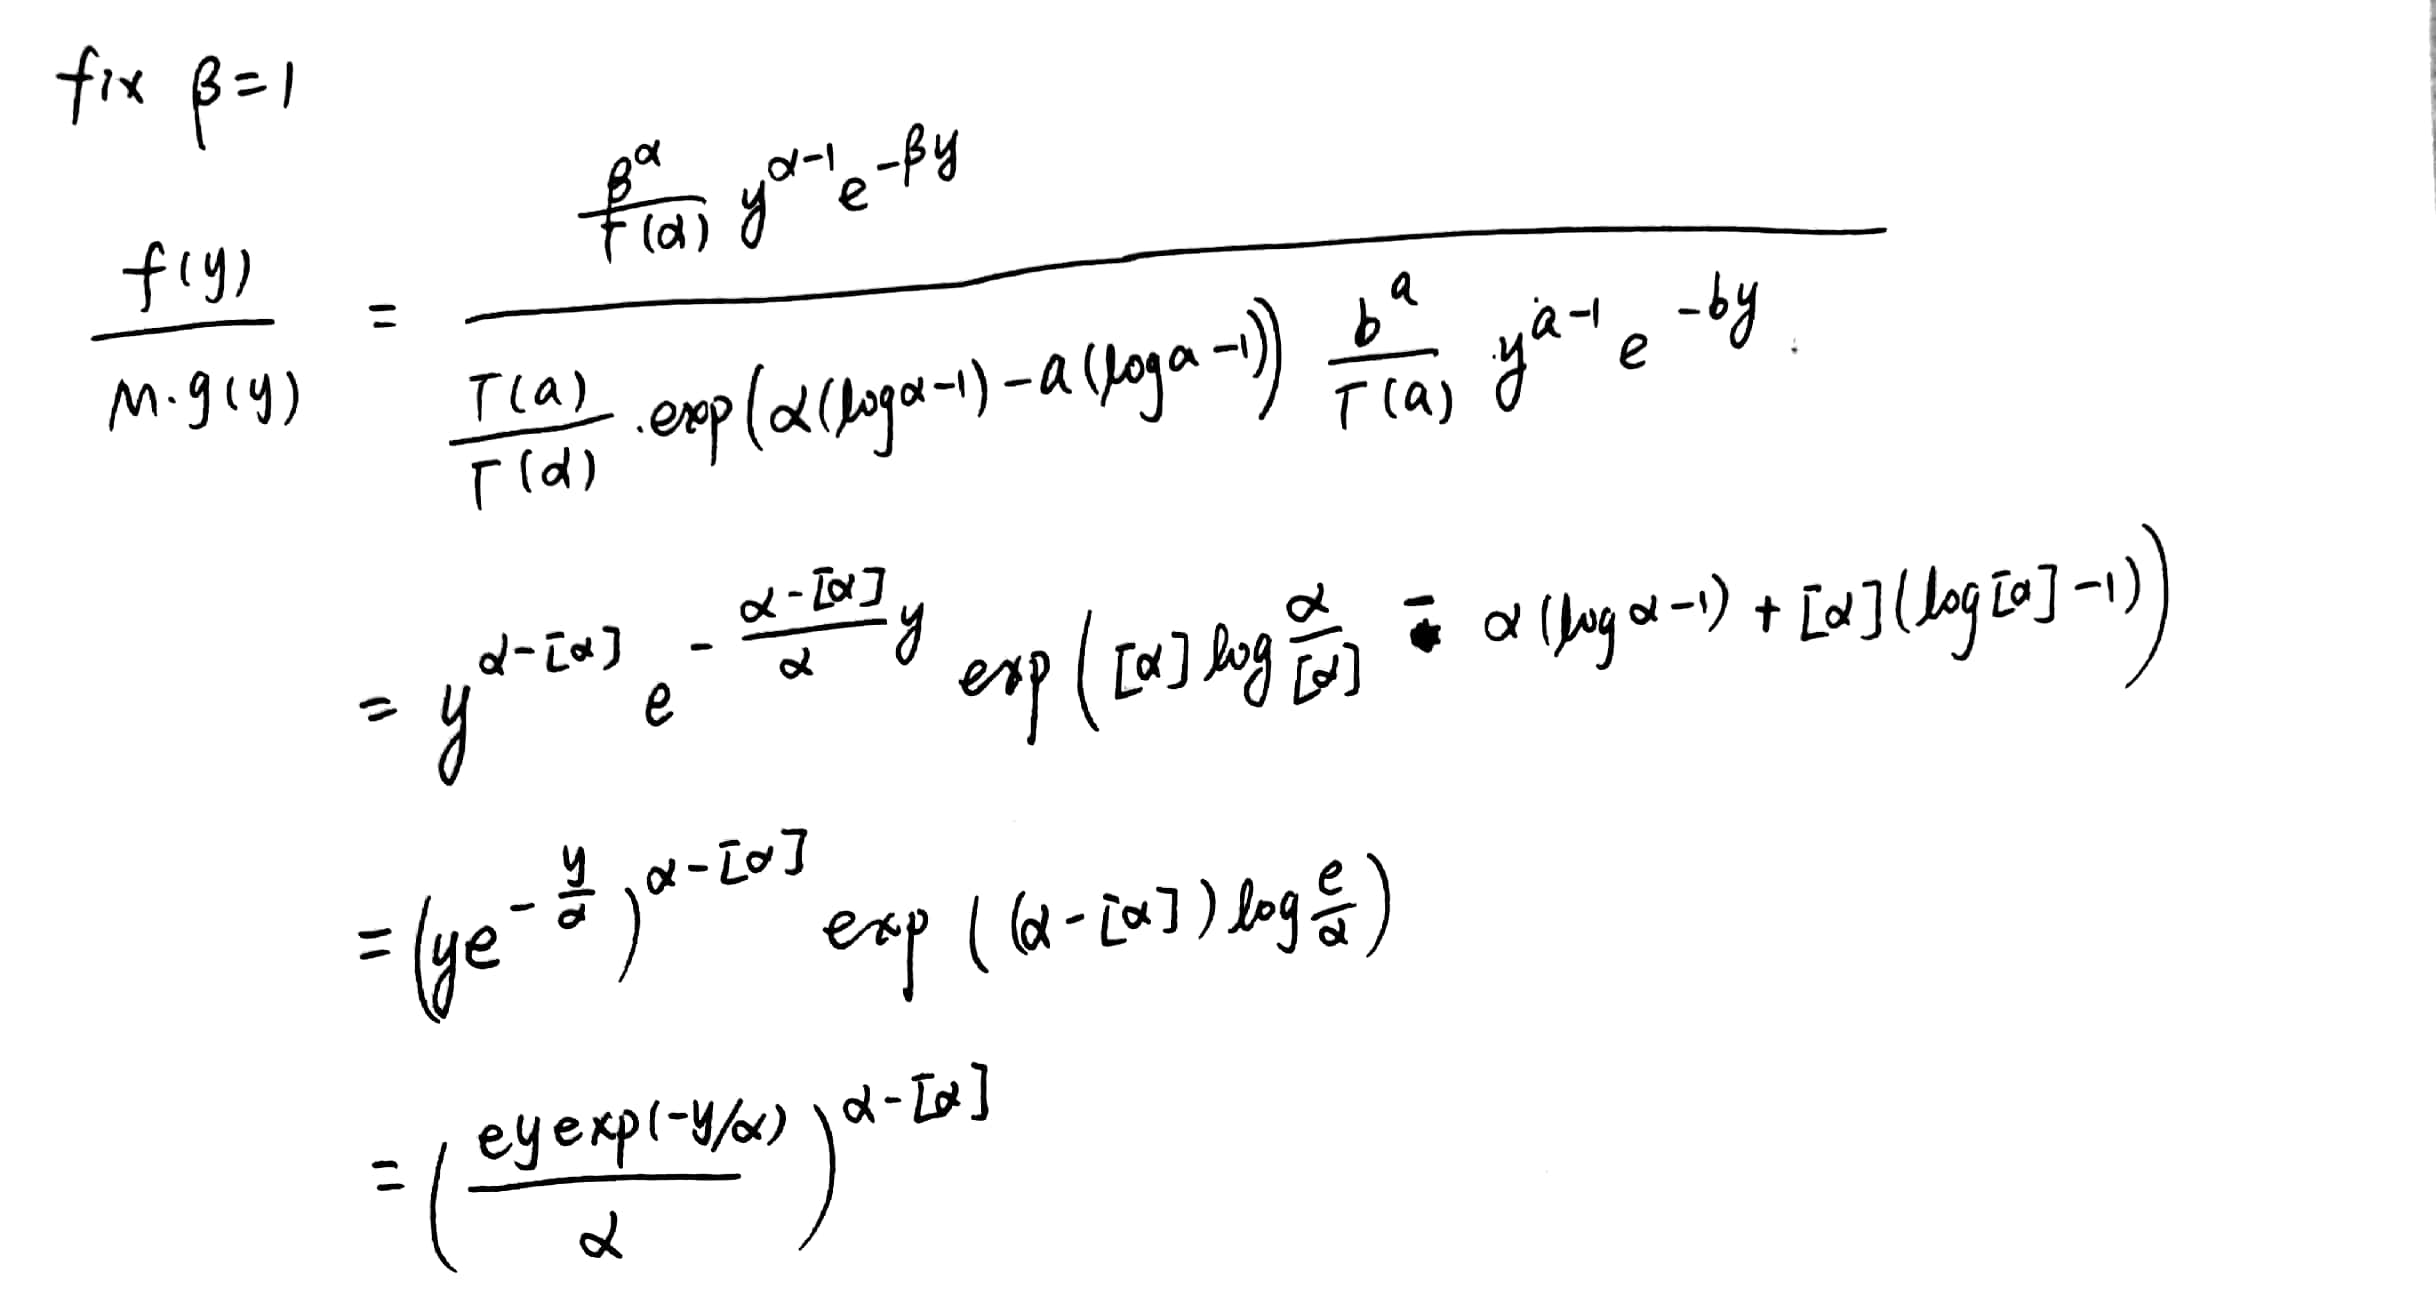 fix β=1
f(y) / M·g(y) = (β^α / Γ(α) y^(α-1) e^(-βy)) / (Γ(a) / Γ(α) · exp(α(log α-1) - a(log a-1)) b^a / Γ(a) y^(a-1) e^(-by))
= y^(α-[α]) e^(-(α-[α])/α y) exp([α] log α/[α] - α(log α-1) + [α](log[α]-1))
= (ye^(-y/α))^(α-[α]) exp((α-[α]) log e/α)
= (ey exp(-y/α) / α)^(α-[α])